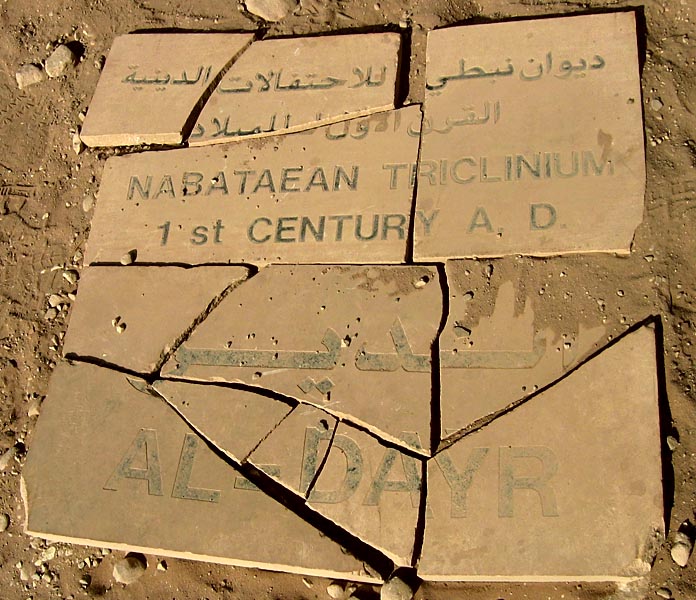 ديوان نبطي للاحتفالات الدينية
القرن الاول للميلاد
NABATAEAN TRICLINIUM
1 st CENTURY A. D.
الدير
AL-DAYR